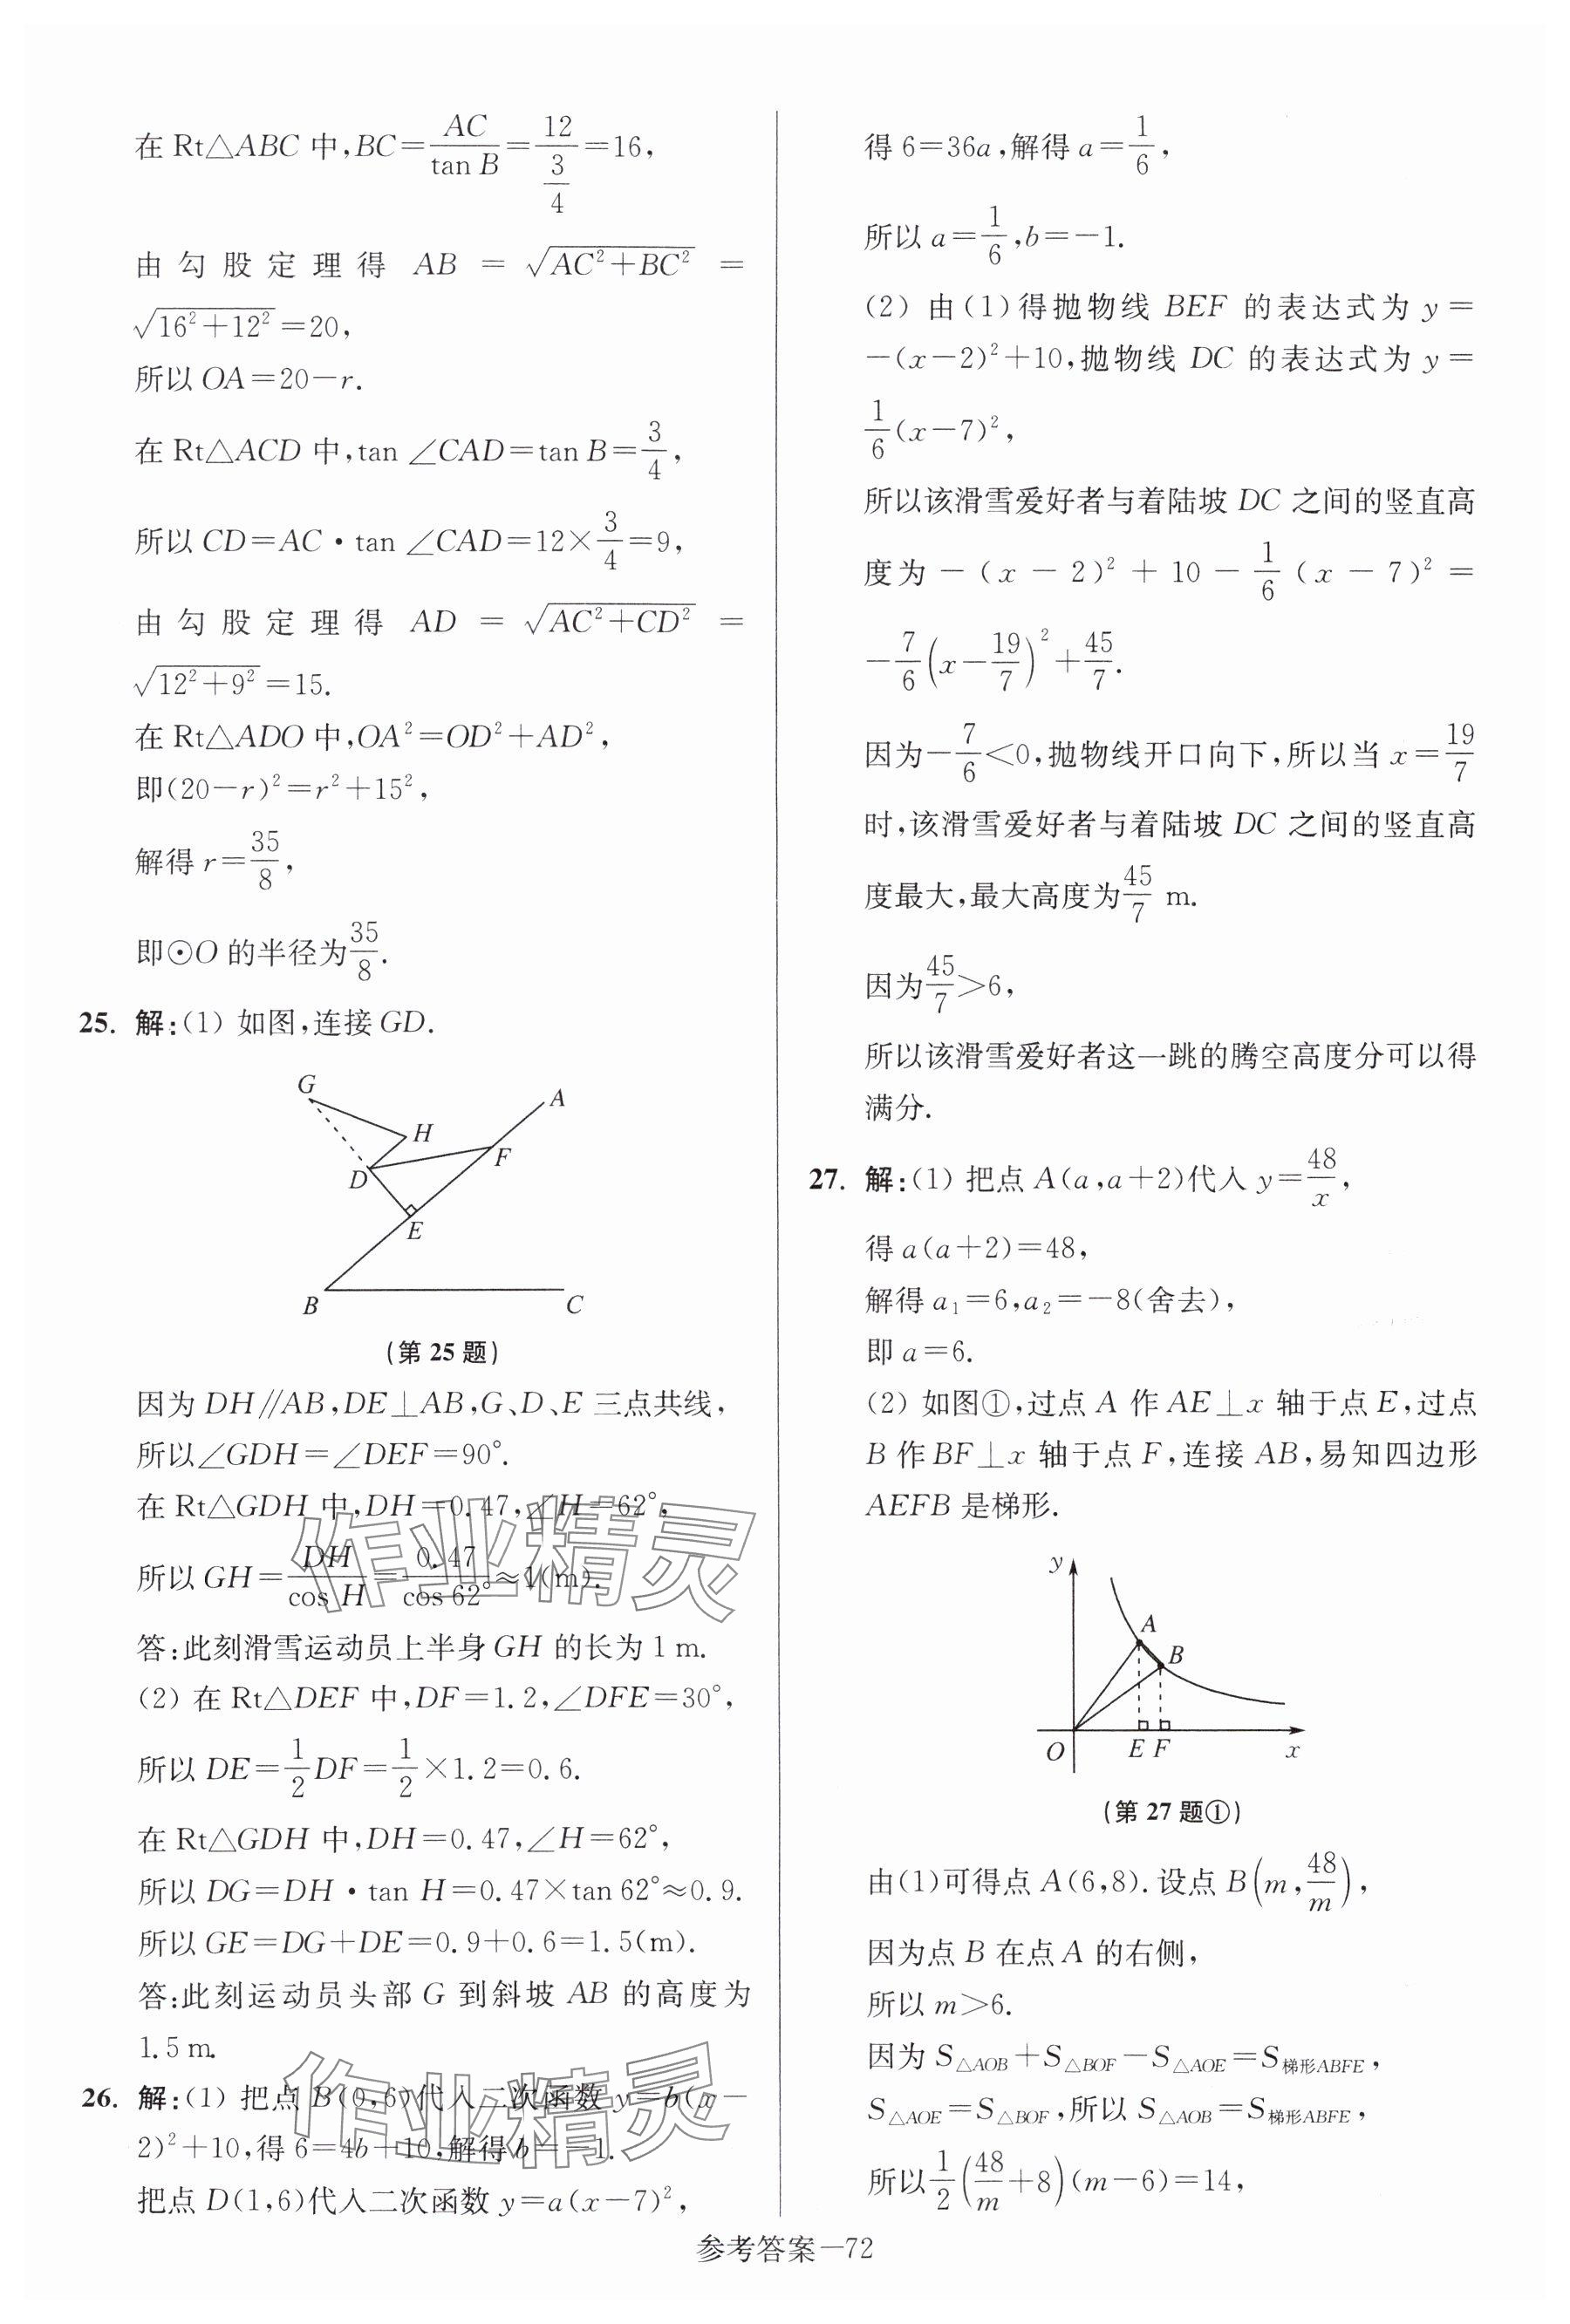 在 Rt△ABC 中,BC=AC/tan B=12/(3/4)=16,
由勾股定理得 AB = √(AC²+BC²) =
√(16²+12²)=20,
所以 OA=20-r.
在 Rt△ACD 中,tan ∠CAD=tan B=3/4,
所以 CD=AC·tan ∠CAD=12×3/4=9,
由勾股定理得 AD = √(AC²+CD²) =
√(12²+9²)=15.
在 Rt△ADO 中,OA²=OD²+AD²,
即(20-r)²=r²+15²,
解得 r=35/8,
即⊙O 的半径为35/8.
25. 解:(1) 如图,连接 GD.
G
A
H
F
D
E
B
C
(第 25 题)
因为 DH∥AB,DE⊥AB,G、D、E 三点共线,
所以∠GDH=∠DEF=90°.
在 Rt△GDH 中,DH=0.47,∠H=62°,
所以 GH=DH/cos H=0.47/cos 62°≈1(m).
答:此刻滑雪运动员上半身 GH 的长为 1 m.
(2) 在 Rt△DEF 中,DF=1.2,∠DFE=30°,
所以 DE=1/2DF=1/2×1.2=0.6.
在 Rt△GDH 中,DH=0.47,∠H=62°,
所以 DG=DH·tan H=0.47×tan 62°≈0.9.
所以 GE=DG+DE=0.9+0.6=1.5(m).
答:此刻运动员头部 G 到斜坡 AB 的高度为
1.5 m.
26. 解:(1) 把点 B(0,6)代入二次函数 y=b(x-
2)²+10,得 6=4b+10,解得 b=-1.
把点 D(1,6)代入二次函数 y=a(x-7)²,
得 6=36a,解得 a=1/6,
所以 a=1/6,b=-1.
(2) 由(1)得抛物线 BEF 的表达式为 y=
-(x-2)²+10,抛物线 DC 的表达式为 y=
1/6(x-7)²,
所以该滑雪爱好者与着陆坡 DC 之间的竖直高
度为-(x-2)²+10-1/6(x-7)²=
-7/6(x-19/7)²+45/7.
因为-7/6<0,抛物线开口向下,所以当 x=19/7
时,该滑雪爱好者与着陆坡 DC 之间的竖直高
度最大,最大高度为45/7 m.
因为45/7>6,
所以该滑雪爱好者这一跳的腾空高度分可以得
满分.
27. 解:(1) 把点 A(a,a+2)代入 y=48/x,
得 a(a+2)=48,
解得 a₁=6,a₂=-8(舍去),
即 a=6.
(2) 如图①,过点 A 作 AE⊥x 轴于点 E,过点
B 作 BF⊥x 轴于点 F,连接 AB,易知四边形
AEFB 是梯形.
y
A
B
O
E F
x
(第 27 题①)
由(1)可得点 A(6,8).设点 B(m,48/m),
因为点 B 在点 A 的右侧,
所以 m>6.
因为 S△AOB+S△BOF-S△AOE=S梯形ABFE,
S△AOE=S△BOF,所以 S△AOB=S梯形ABFE,
所以1/2(48/m+8)(m-6)=14,
作业精灵
作业精灵
参考答案—72